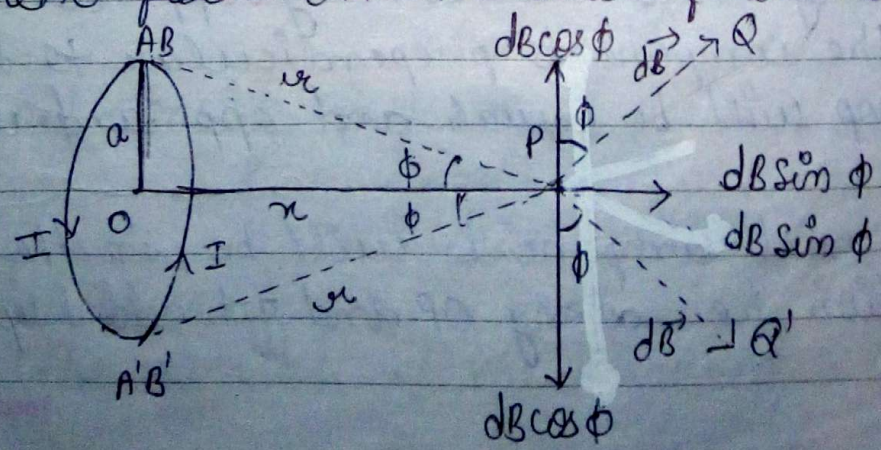 AB
dBcosϕ
dB
Q
r
a
P
ϕ
ϕ
dBSin ϕ
O
x
ϕ
dBSin ϕ
I
I
ϕ
r
dB
Q'
A'B'
dBcosϕ